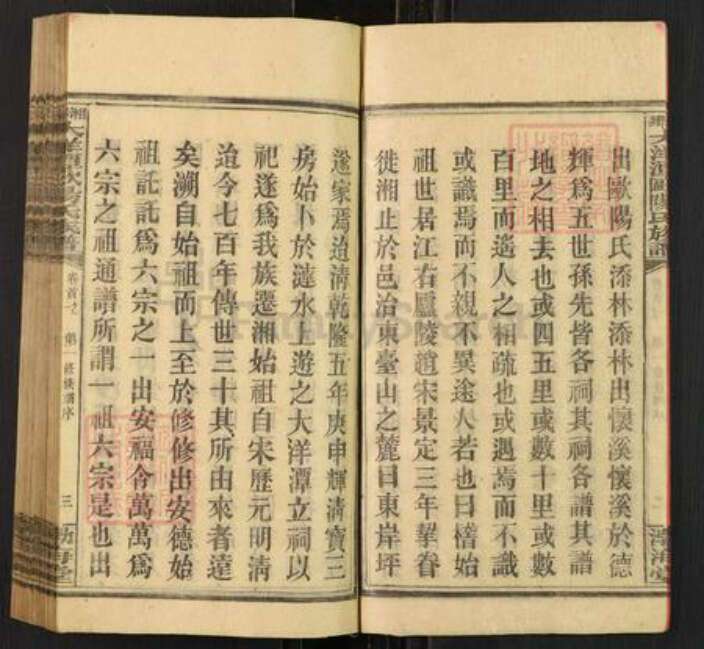 出歐陽氏添林添林出懷溪懷溪於德
輝爲五世孫先皆各祠其祠各譜其譜
地之相去也或四五里或數十里或數
百里而遙人之相疏也或遇焉而不識
或識焉而不親不異途人若也曰稽始
祖世居江右廬陵趙宋景定三年挈眷
徙湘止於邑治東臺山之麓曰東岸坪
遂家焉迨清乾隆五年庚申輝清寶三
房始卜於漣水上遊之大洋潭立祠以
祀遂爲我族遷湘始祖自宋歷元明清
迨今七百年傳世三十其所由來者遠
矣溯自始祖而上至於修修出安德始
祖託託爲六宗之一出安福令萬萬爲
六宗之祖通譜所謂一祖六宗是也出
卷首之
第一修族譜序
三